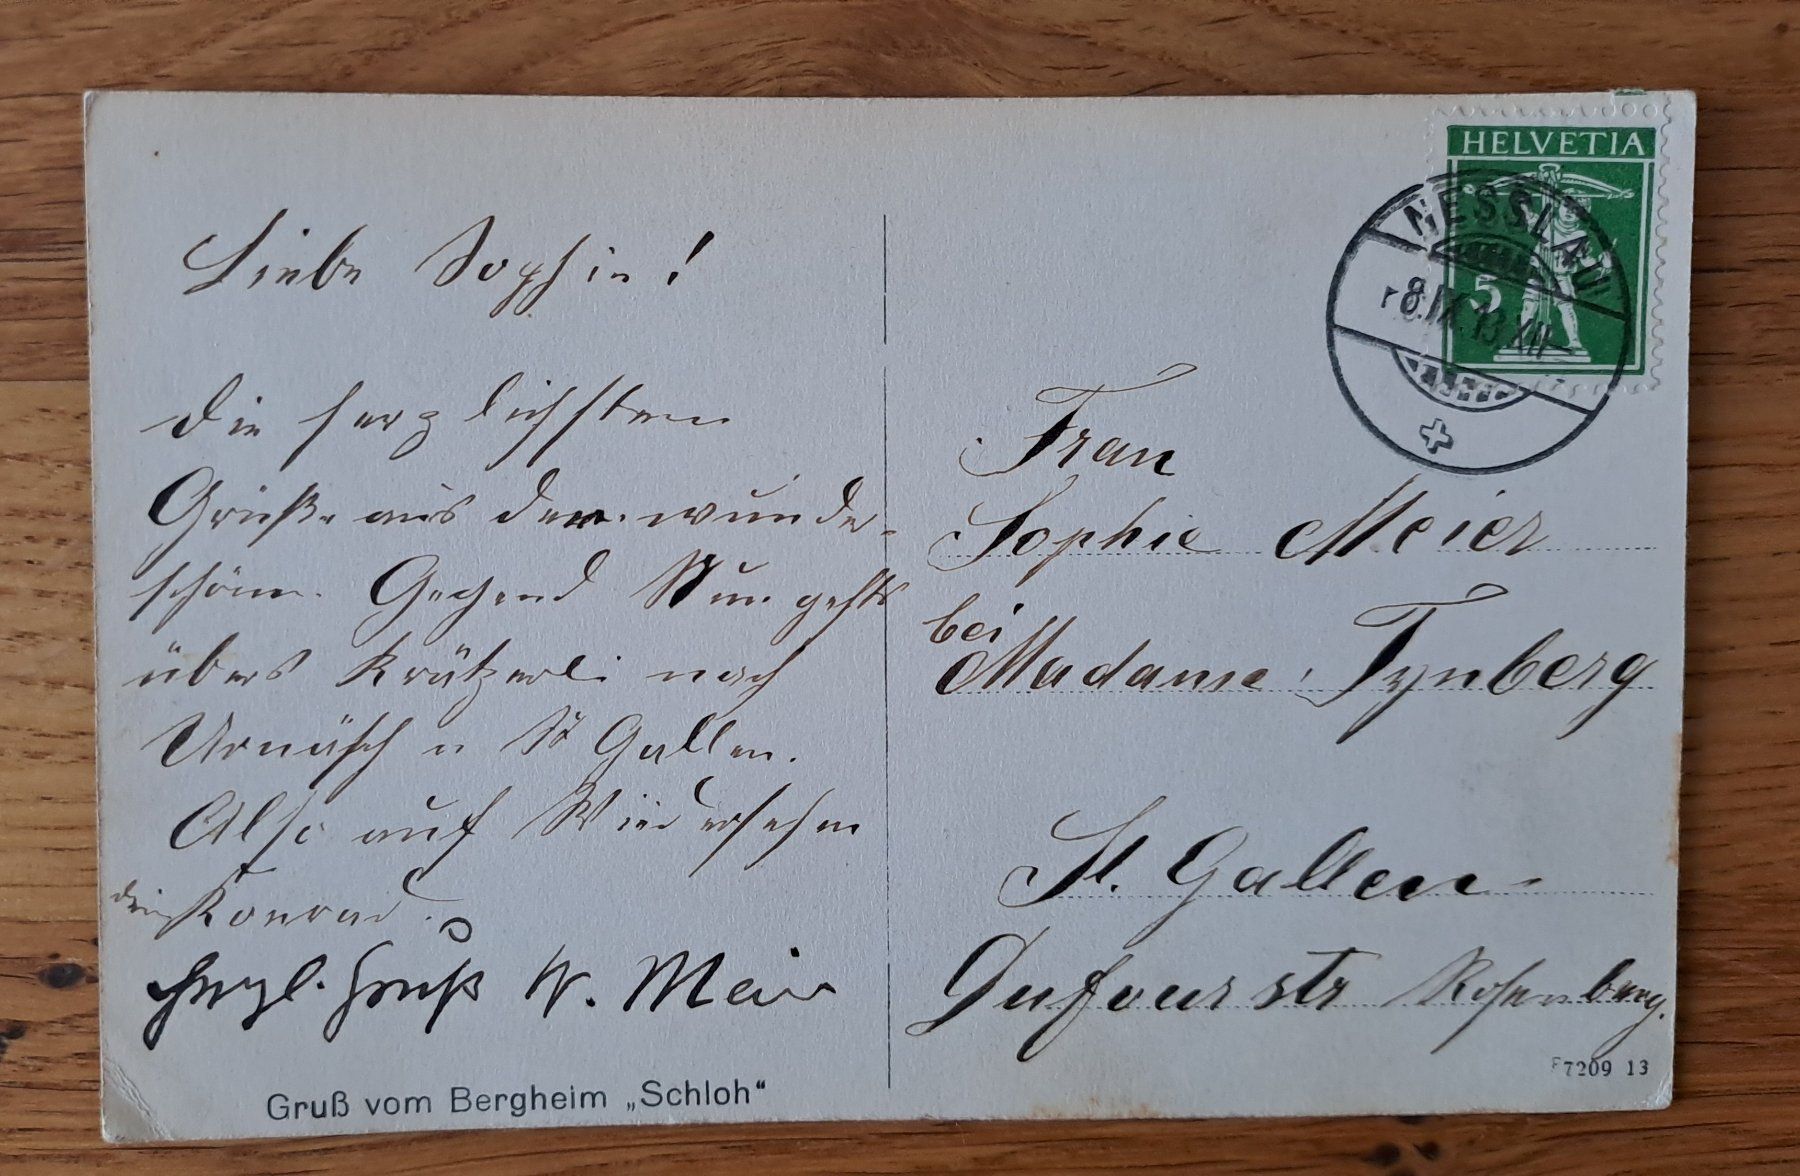 Liebe Sophie!
Die herzlichsten
Grüße aus der wunder-
schönen Gegend Nun gehts
übers Kräzerli nach
Urnäsch u St Gallen.
Also auf Wiedersehen
dein Konrad.
Herzl. Gruß W. Meier
Gruß vom Bergheim „Schloh“
HELVETIA
5
NESSLAU
8.IX.13.XII
Frau
Sophie Meier
bei
Madame Tynberg
St. Gallen
Dufourstr Rosenberg.
7209 13